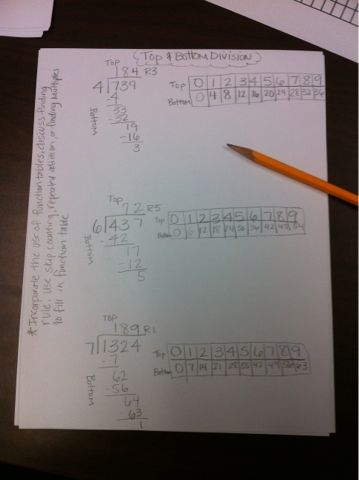 Top & Bottom Division
Top
184 R3
4 739
-4
33
-32
19
-16
3
Bottom
Top 0 1 2 3 4 5 6 7 8 9
Bottom 0 4 8 12 16 20 24 28 32 36
Top
72 R5
6 437
-42
17
-12
5
Bottom
Top 0 1 2 3 4 5 6 7 8 9
Bottom 0 6 12 18 24 30 36 42 48 54
Top
189 R1
7 1324
-7
62
-56
64
-63
1
Bottom
Top 0 1 2 3 4 5 6 7 8 9
Bottom 0 7 14 21 28 35 42 49 56 63
*Incorporate the use of function tables, discuss finding
rule. Use skip counting, repeated addition, or finding multiples
to fill in function table